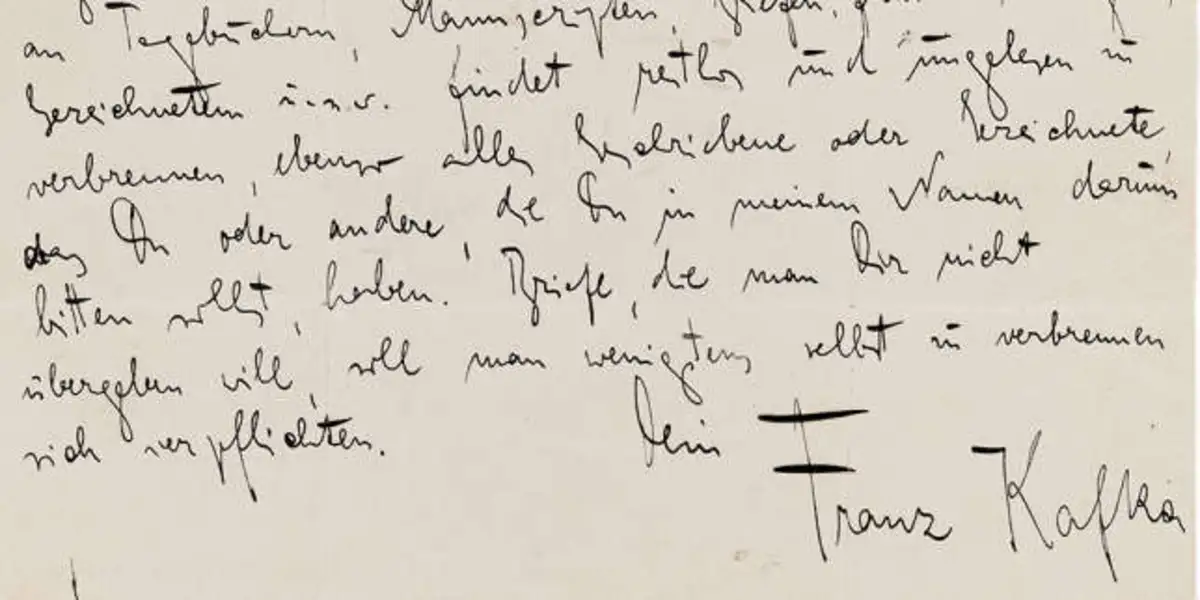 an Tagebüchern, Manuscripten, Briefen,
Gezeichnetem u.s.w. findet restlos und ungelesen zu
verbrennen, ebenso alles Geschriebene oder Gezeichnete,
das Du oder andere, die Du in meinem Namen darum
bitten sollst, haben. Briefe, die man Dir nicht
übergeben will, soll man wenigstens selbst zu verbrennen
sich verpflichten.
Dein Franz Kafka